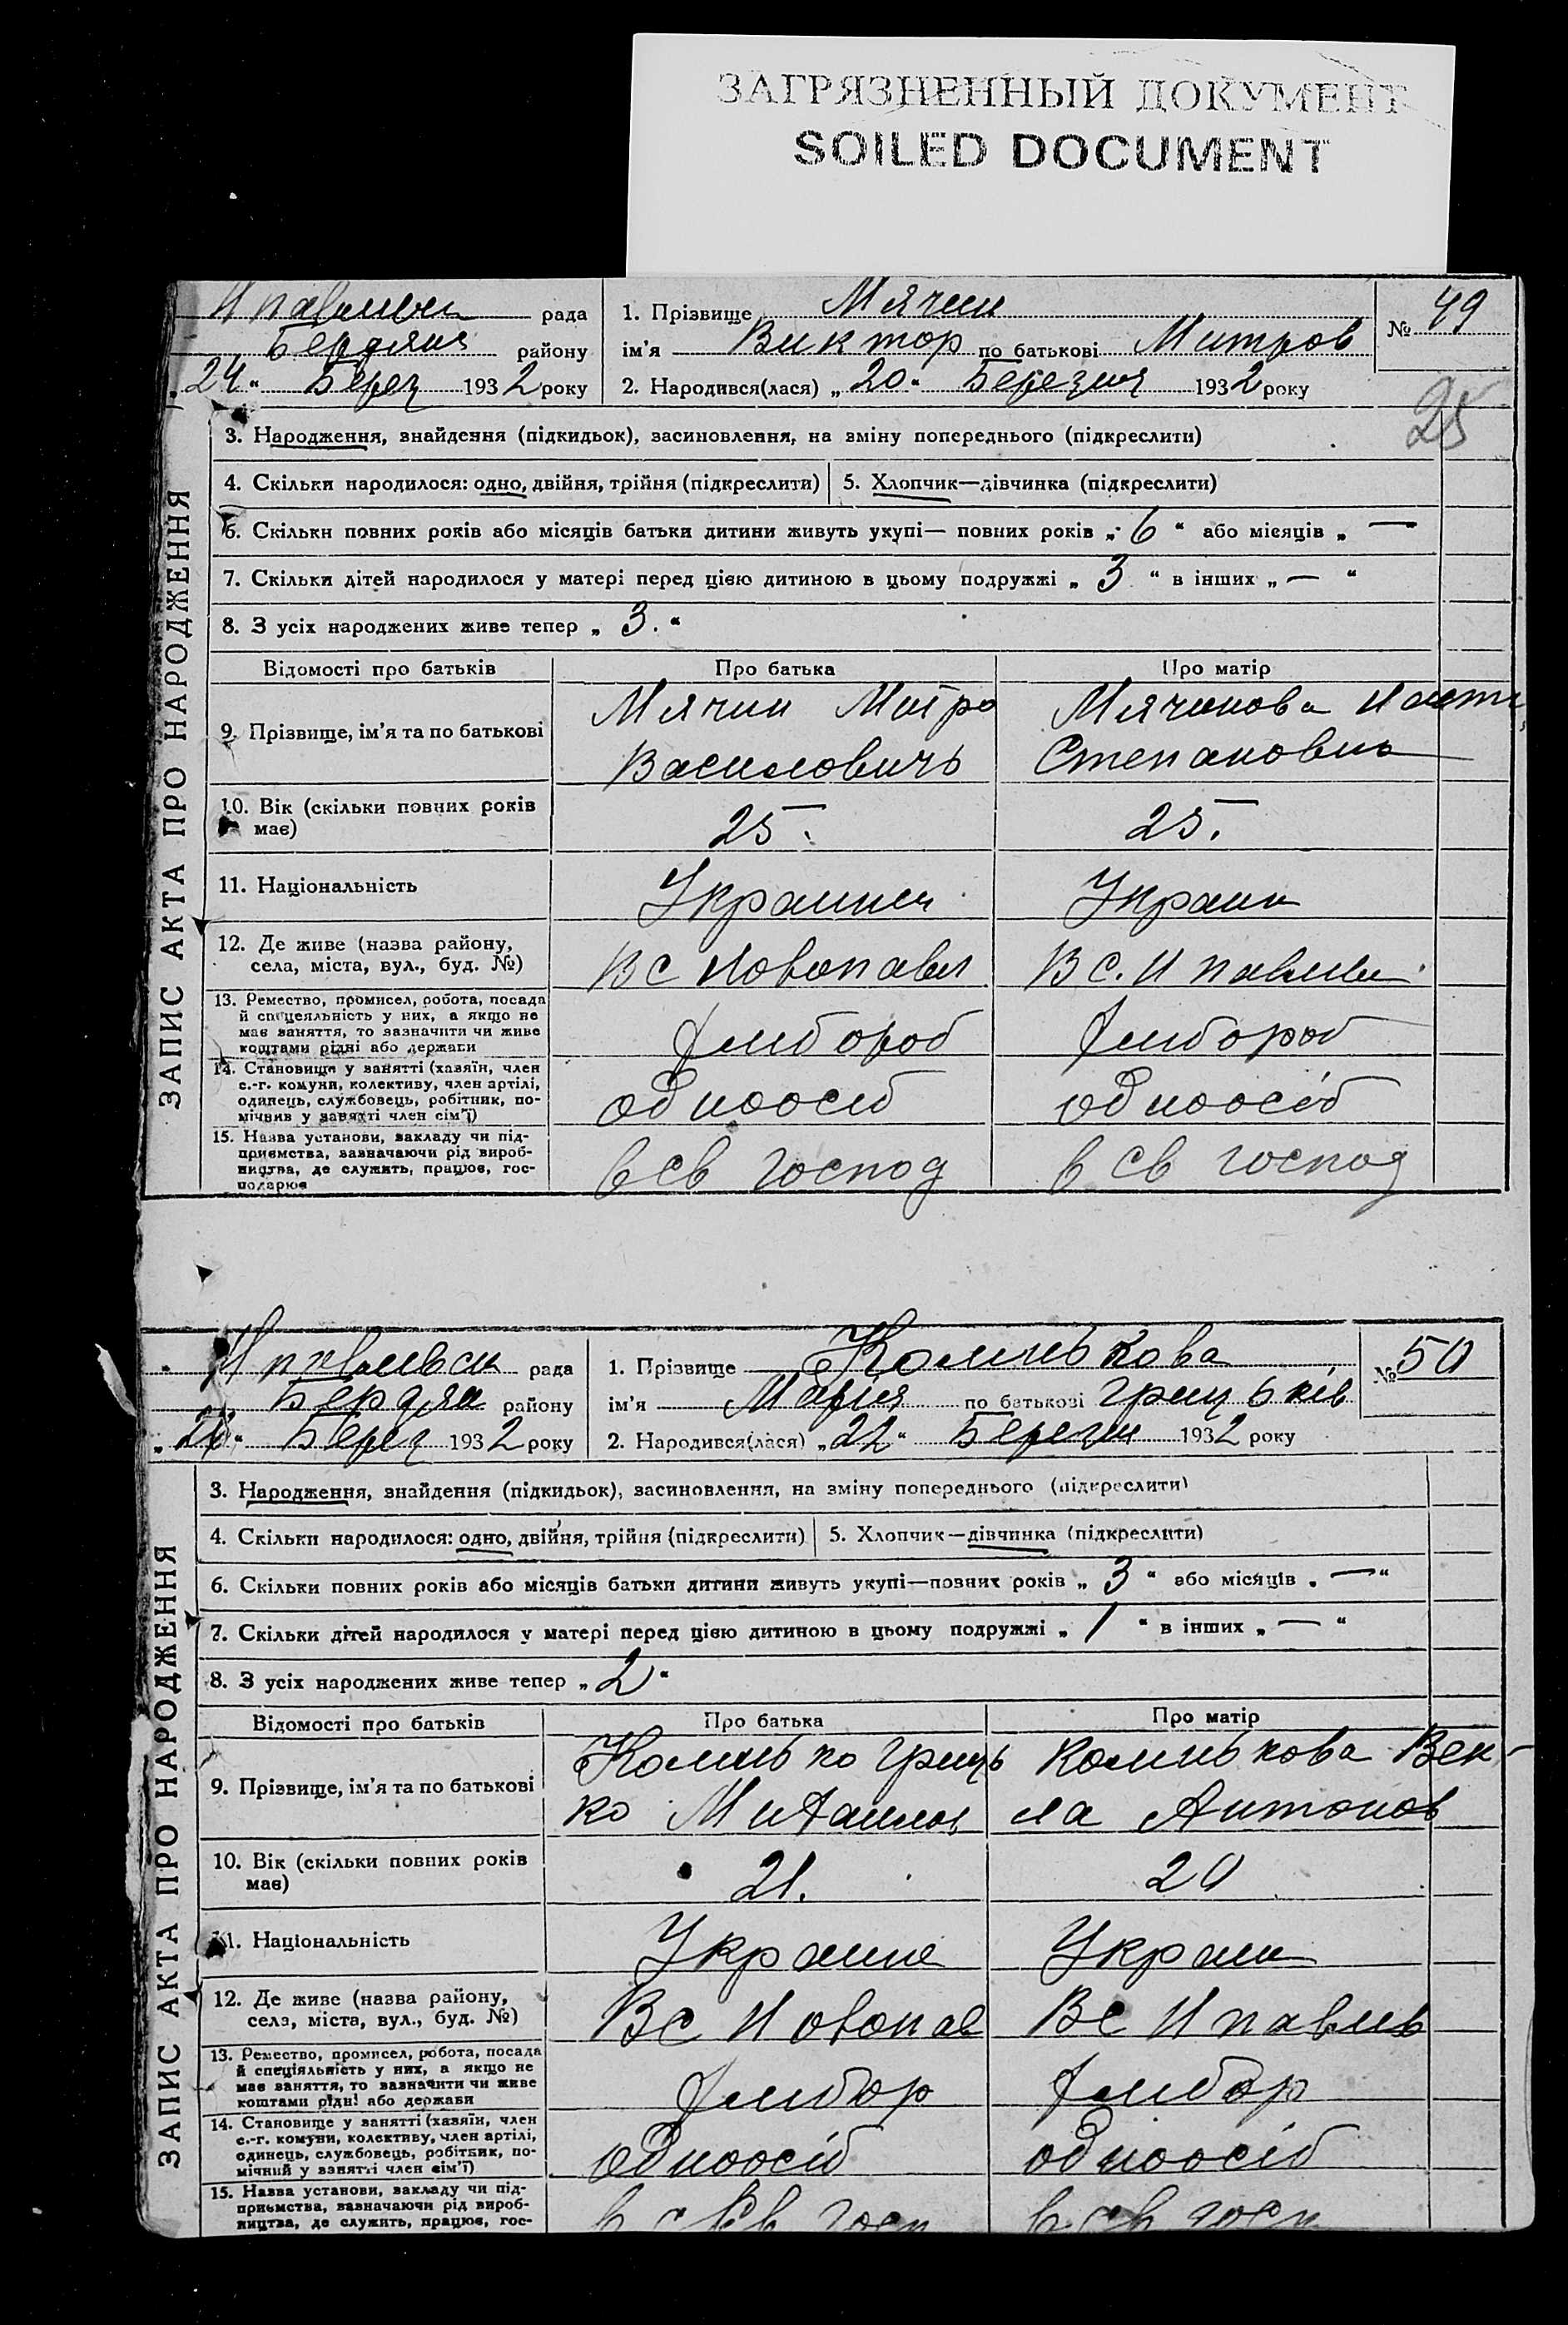 ЗАГРЯЗНЕННЫЙ ДОКУМЕНТ
SOILED DOCUMENT
рада
Бердянс району
„24“ Берез 1932 року
1. Прізвище Мячин
ім'я Виктор по батькові Митров
2. Народився(лася) „20“ Березня 1932 року
№ 49
25
ЗАПИС АКТА ПРО НАРОДЖЕННЯ
3. Народження, знайдення (підкидьок), засиновлення, на зміну попереднього (підкреслити)
4. Скільки народилося: одно, двійня, трійня (підкреслити)
5. Хлопчик—дівчинка (підкреслити)
6. Скільки повних років або місяців батьки дитини живуть укупі— повних років „6“ або місяців „—
7. Скільки дітей народилося у матері перед цією дитиною в цьому подружжі „3“ в інших „—“
8. З усіх народжених живе тепер „3.“
Відомості про батьків
Про батька
Про матір
9. Прізвище, ім'я та по батькові
Мячин Митро
Василовичь
Мячинова Наст
Степановна
10. Вік (скільки повних років
має)
25.
25.
11. Національність
Украинец
Украин
12. Де живе (назва району,
села, міста, вул., буд. №)
В с Новопавл
В с. Н павлівк
13. Ремество, промисел, робота, посада
й спеціяльність у них, а якщо не
має заняття, то зазначити чи живе
коштами рідні або держави
Хлибороб
Хлибороб
14. Становище у занятті (хазяїн, член
с.-г. комуни, колективу, член артілі,
одинець, службовець, робітник, по-
мічний у занятті член сім'ї)
одноосіб
одноосіб
15. Назва установи, закладу чи під-
приємства, зазначаючи рід вироб-
ництва, де служить, працює, гос-
подарює
в св господ
в св господ
рада
Бердян району
Берез 1932 року
1. Прізвище Колинькова
ім'я Мария по батькові Грицьків
2. Народився(лася) „22“ Березн 1932 року
№ 50
ЗАПИС АКТА ПРО НАРОДЖЕННЯ
3. Народження, знайдення (підкидьок), засиновлення, на зміну попереднього (підкреслити)
4. Скільки народилося: одно, двійня, трійня (підкреслити)
5. Хлопчик—дівчинка (підкреслити)
6. Скільки повних років або місяців батьки дитини живуть укупі—повних років „3“ або місяців „—“
7. Скільки дітей народилося у матері перед цією дитиною в цьому подружжі „1“ в інших „—“
8. З усіх народжених живе тепер „2“
Відомості про батьків
Про батька
Про матір
9. Прізвище, ім'я та по батькові
Колинько Гриць
ко Михаилов
Колинькова Век-
ла Антонов
10. Вік (скільки повних років
має)
21.
20
11. Національність
Украине
Украин
12. Де живе (назва району,
села, міста, вул., буд. №)
Вс Новопав
Вс Н павлив
13. Ремество, промисел, робота, посада
й спеціяльність у них, а якщо не
має заняття, то зазначити чи живе
коштами рідні або держави
Хлибор
Хлибор
14. Становище у занятті (хазяїн, член
с.-г. комуни, колективу, член артілі,
одинець, службовець, робітник, по-
мічний у занятті член сім'ї)
одноосіб
одноосіб
15. Назва установи, закладу чи під-
приємства, зазначаючи рід вироб-
ництва, де служить, працює, гос-
в св госп
в св госп